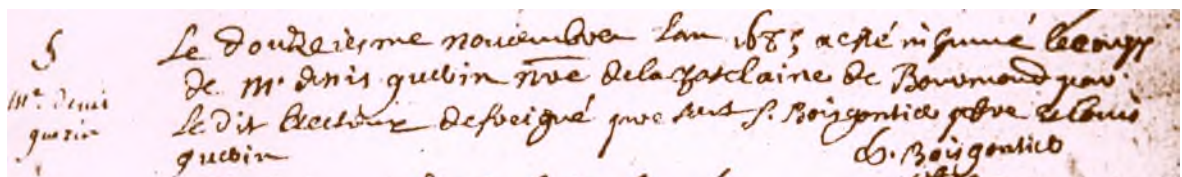 S
Mre denis
guerin
Le douzeiesme nouembre lan 1685 a esté inhumé le corps
de Mr denis guerin nre de la chatelaine de Bourmond par
le dit Recteur de freigné pnt f. Boisgontier pbre et louis
guerin
Ch. Boisgontier